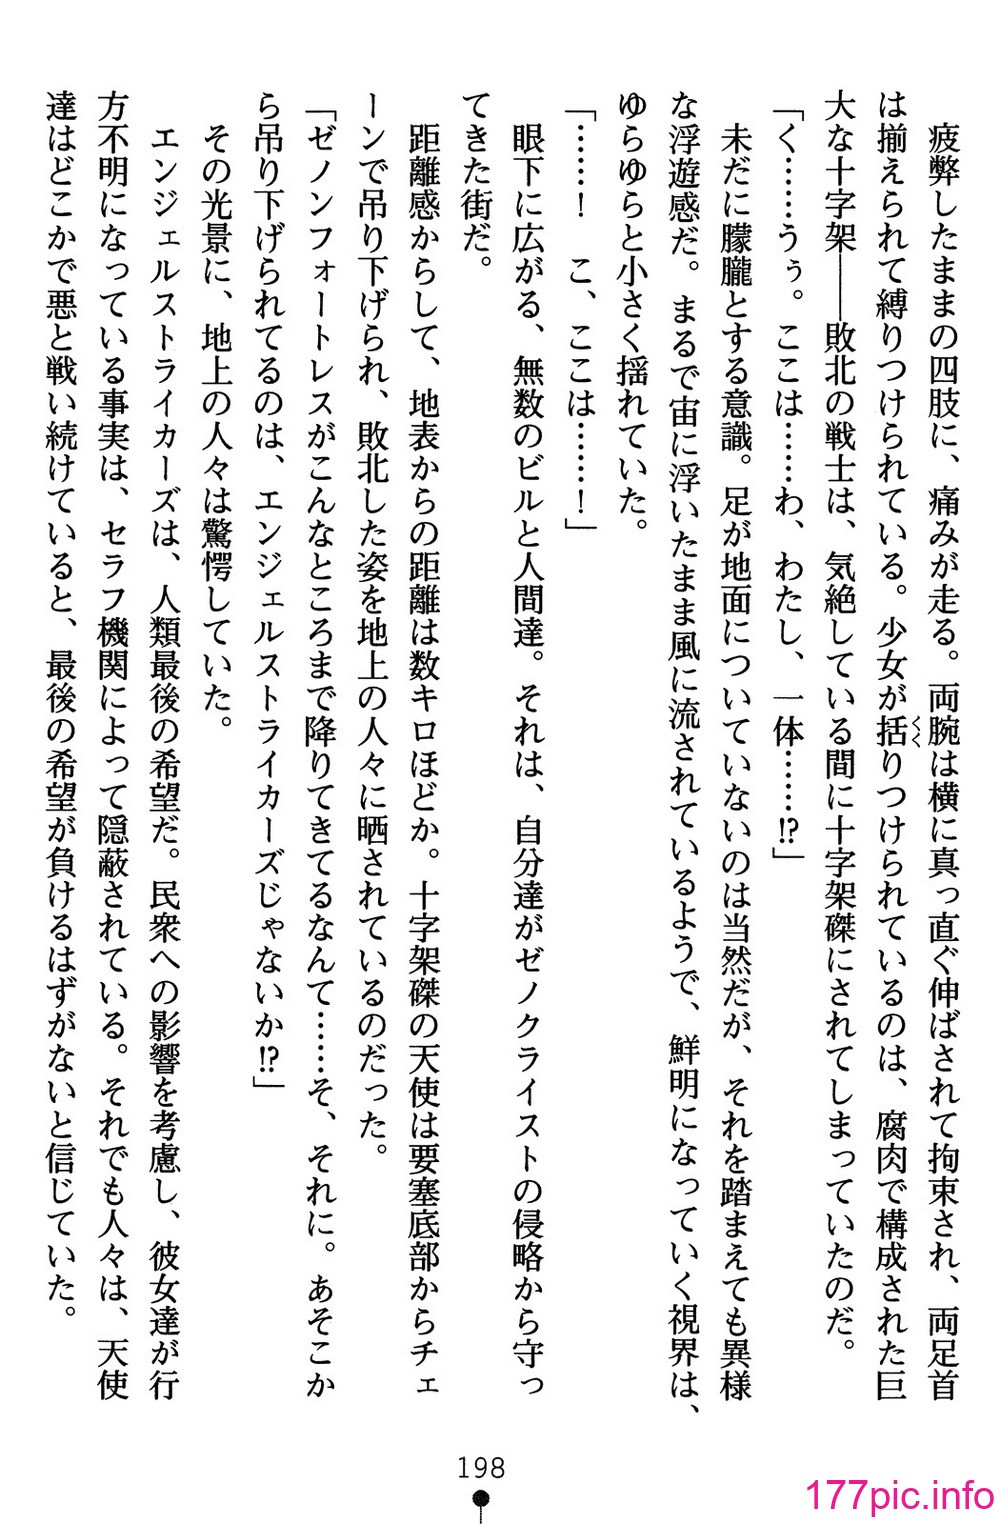 疲弊したままの四肢に、痛みが走る。両腕は横に真っ直ぐ伸ばされて拘束され、両足首
は揃えられて縛りつけられている。少女が括りつけられているのは、腐肉で構成された巨
くく
大な十字架――敗北の戦士は、気絶している間に十字架磔にされてしまっていたのだ。
「く……うぅ。ここは……わ、わたし、一体……!?」
未だに朦朧とする意識。足が地面についていないのは当然だが、それを踏まえても異様
な浮遊感だ。まるで宙に浮いたまま風に流されているようで、鮮明になっていく視界は、
ゆらゆらと小さく揺れていた。
「……！　こ、ここは……！」
眼下に広がる、無数のビルと人間達。それは、自分達がゼノクライストの侵略から守っ
てきた街だ。
距離感からして、地表からの距離は数キロほどか。十字架磔の天使は要塞底部からチェ
ーンで吊り下げられ、敗北した姿を地上の人々に晒されているのだった。
「ゼノンフォートレスがこんなところまで降りてきてるなんて……そ、それに。あそこか
ら吊り下げられてるのは、エンジェルストライカーズじゃないか!?」
その光景に、地上の人々は驚愕していた。
エンジェルストライカーズは、人類最後の希望だ。民衆への影響を考慮し、彼女達が行
方不明になっている事実は、セラフ機関によって隠蔽されている。それでも人々は、天使
達はどこかで悪と戦い続けていると、最後の希望が負けるはずがないと信じていた。
198
177pic.info